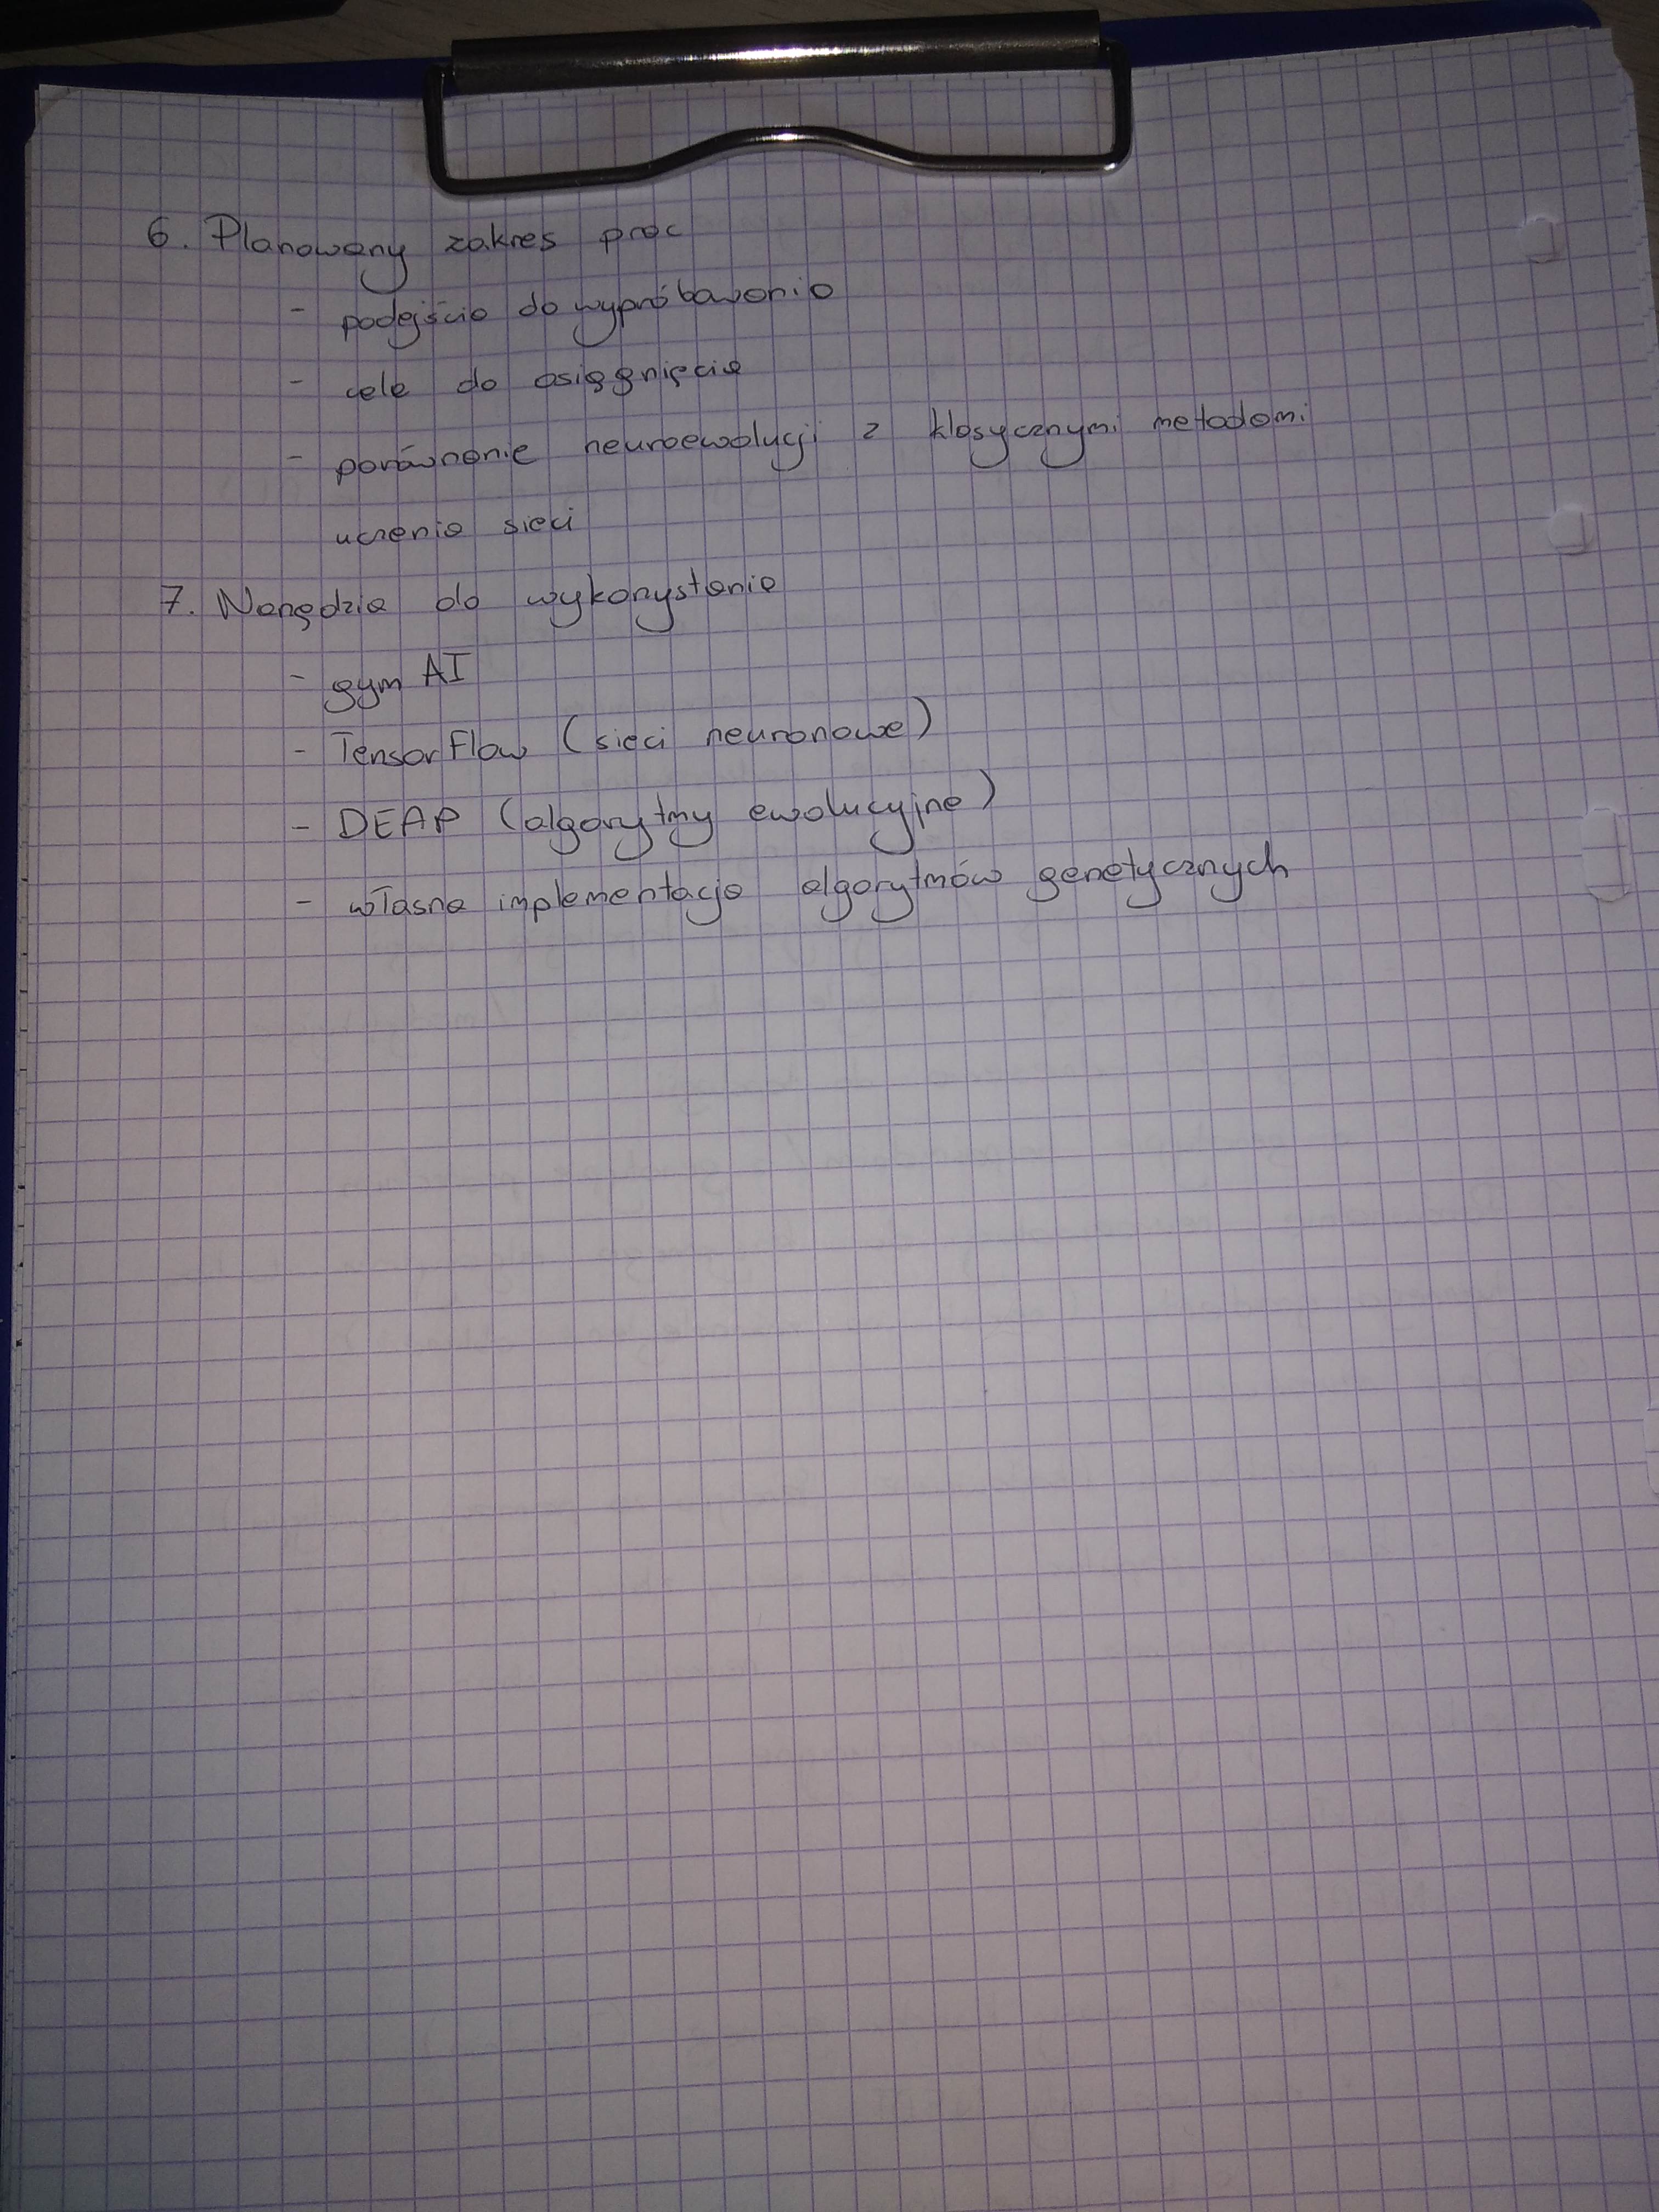 6. Planowany zakres prac
- podejścia do wypróbowania
- cele do osiągnięcia
- porównanie neuroewolucji z klasycznymi metodami
uczenia sieci
7. Narzędzia do wykorzystania
- gym AI
- TensorFlow (sieci neuronowe)
- DEAP (algorytmy ewolucyjne)
- własna implementacja algorytmów genetycznych